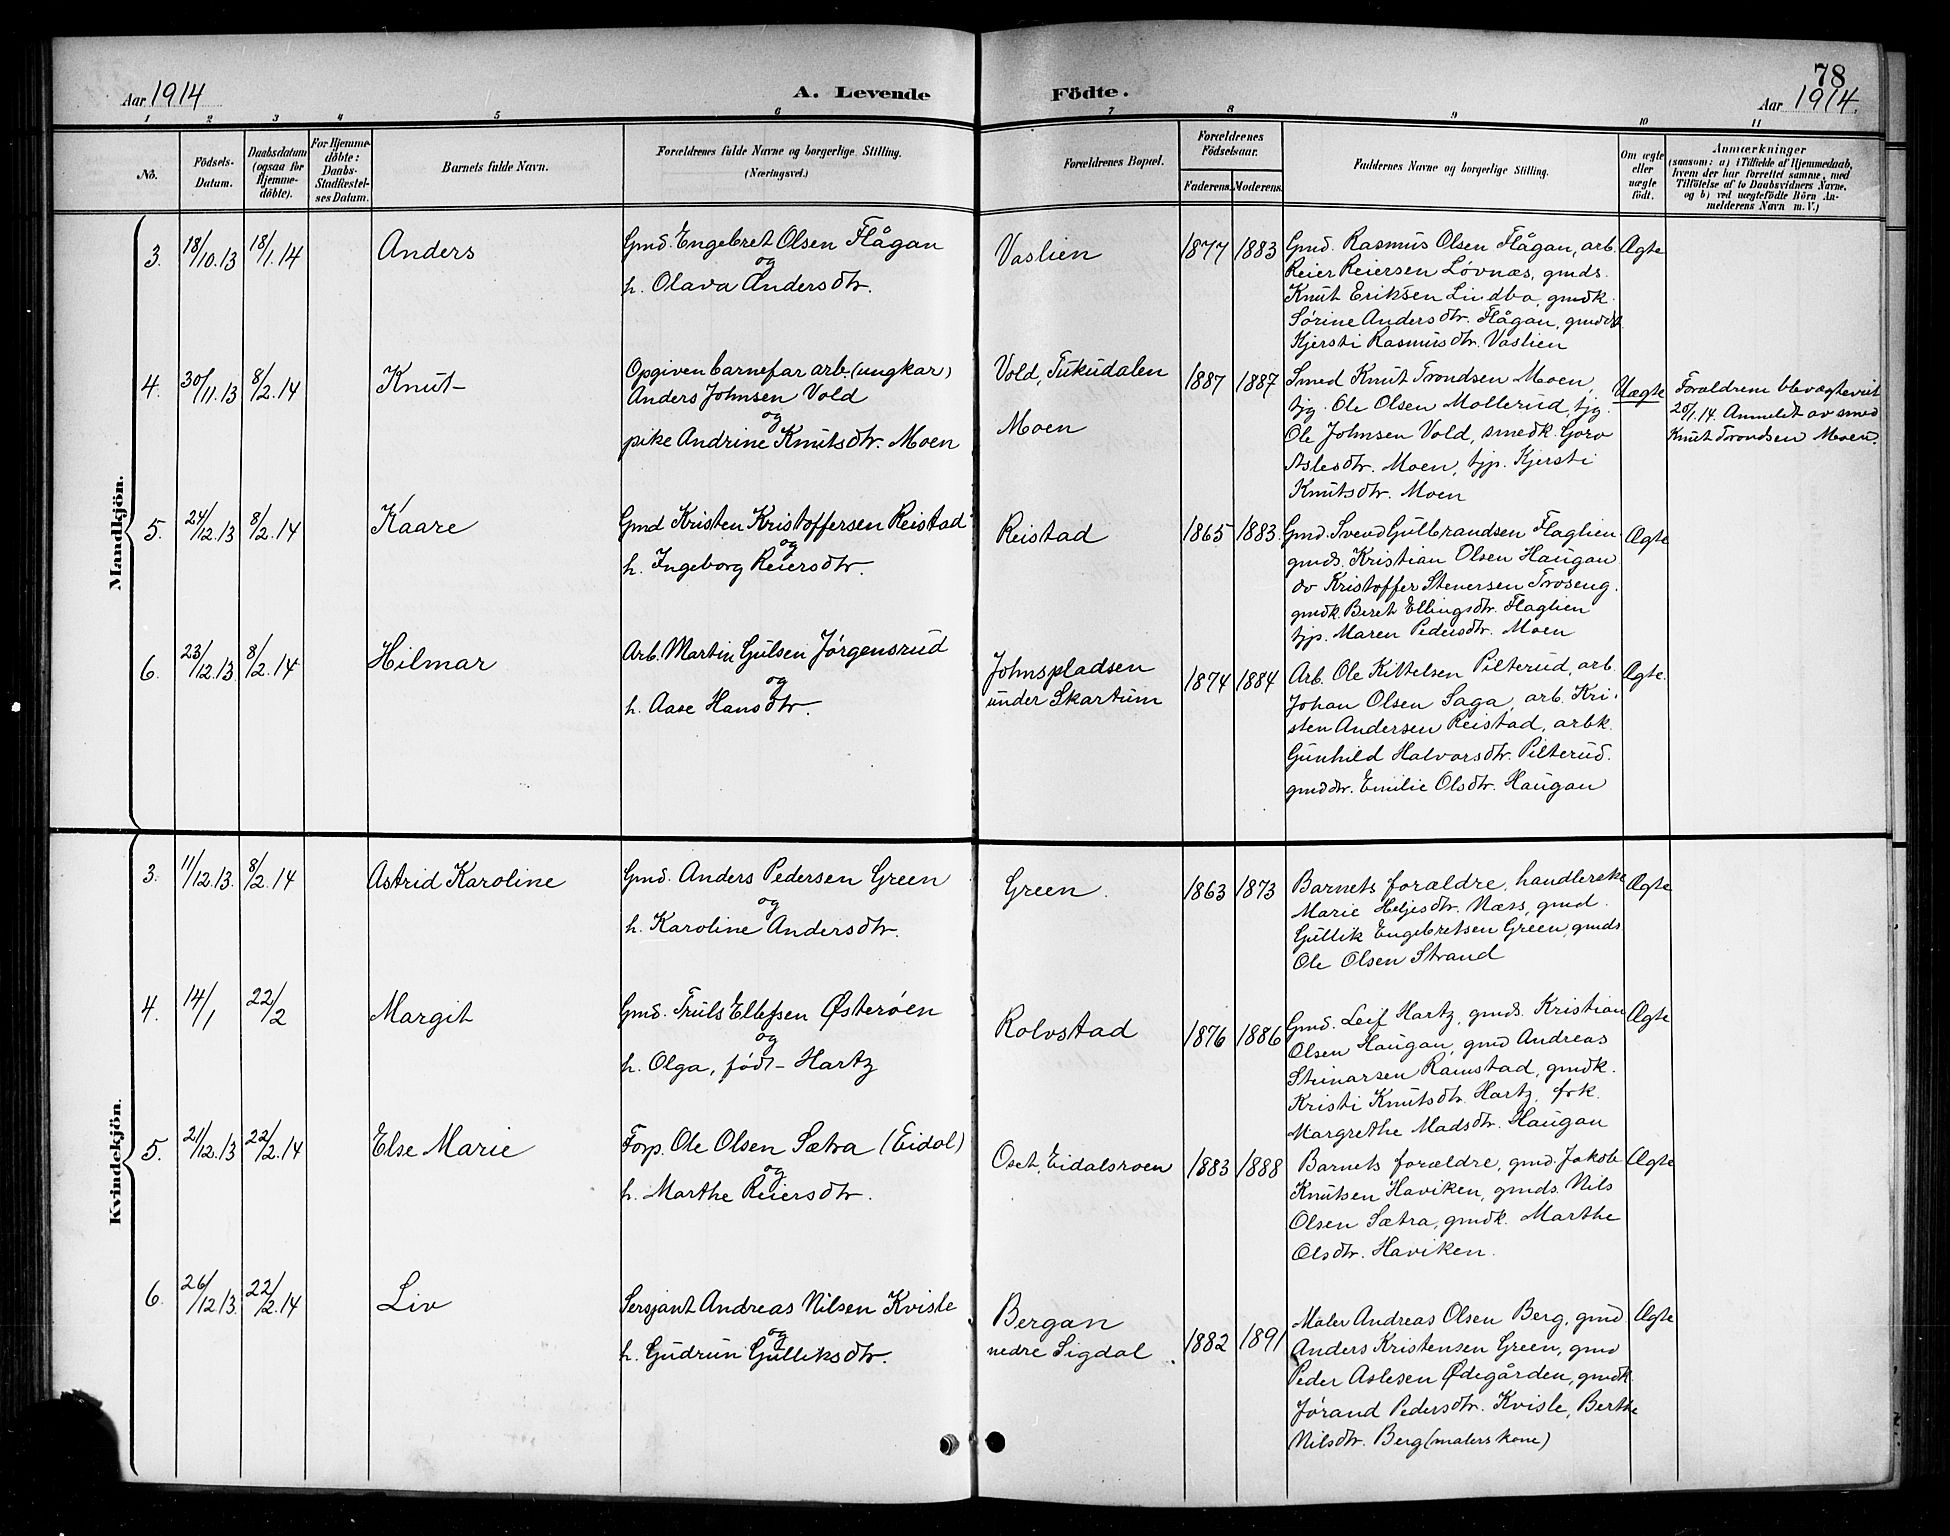 78
Aar 1914 A. Levende Födte. Aar 1914.
1 2 3 4 5 6 7 8 9 10 11
No.
Födsels-
Datum.
Daabsdatum
(ogsaa for
Hjemme-
döbte).
For Hjemme-
döbte:
Daabs-
Stadfæstel-
ses Datum.
Barnets fulde Navn.
Forældrenes fulde Navne og borgerlige Stilling.
(Næringsvei.)
Forældrenes Bopæl.
Forældrenes
Födselsaar.
Faderens. Moderens.
Faddernes Navne og borgerlige Stilling.
Om ægte
eller
uægte
födt.
Anmærkninger
(saasom: a) i Tilfælde af Hjemmedaab,
hvem der har forrettet samme, med
Tilföielse af to Daabsvidners Navne,
og b) ved uægtefödte Börn An-
melderens Navn m. V.)
Mandkjön.
3. 18/10.13 18/1.14 Anders
Gmd. Engebret Olsen Flågan
og
h. Olava Andersdtr.
Vaslien 1877 1883
Gmd. Rasmus Olsen Flågan, arb.
Reier Reiersen Løvnæs, gmds.
Knut Eriksen Lindbo, gmdk.
Sørine Andersdtr. Flågan, gmddtr.
Kjersti Rasmusdtr. Vaslien
Ægte
4. 30/11.13 8/2.14 Knut
Opgiven barnefar arb. (ungkar)
Anders Johnsen Vold
og
pike Andrine Knutsdtr. Moen
Vold, Tukudalen
Moen
1887 1887
Smed Knut Trondsen Moen,
tjg. Ole Olsen Mollerud, tjg.
Ole Johnsen Vold, smedk. Goro
Aslesdtr. Moen, tjp. Kjersti
Knutsdtr. Moen
Uægte
Forældrene blev ægteviet
25/1.14. Anmeldt av smed
Knut Trondsen Moen.
5. 24/12.13 8/2.14 Kaare
Gmd Kristen Kristoffersen Reistad
og
h. Ingeborg Reiersdtr.
Reistad 1865 1883
Gmd. Svend Gulbrandsen Flaglien
gmds. Kristian Olsen Haugan
ov Kristoffer Stenersen Troseng.
gmdk. Beret Ellingsdtr. Flaglien
tjp. Maren Pedersdtr. Moen
Ægte
6. 23/12.13. 8/2.14 Hilmar
Arb. Martin Gulsen Jørgensrud
og
h. Aase Hansdtr.
Johnspladsen
under Skartum
1874 1884
Arb. Ole Kittelsen Pilterud, arb.
Johan Olsen Saga, arb. Kri-
sten Andersen Reistad, arbk.
Gunhild Halvorsdtr. Pilterud.
gmddtr. Emilie Olsdtr. Haugan
Ægte.
Kvindekjön.
3. 11/12.13. 8/2.14 Astrid Karoline
Gmd. Anders Pedersen Green
og
h. Karoline Andersdtr.
Green. 1863 1873
Barnets forældre, handlerske
Marie Heljesdtr. Næss, gmd.
Gullik Engebretsen Green, gmds
Ole Olsen Strand
Ægte
4. 14/1 22/2 Margit
Gmd. Truls Ellefsen Østerøen
og
h. Olga, født Hartz
Rolvstad 1876 1886
Gmd. Leif Hartz, gmds. Kristian
Olsen Haugan, gmd Andreas
Steinarsen Ramstad, gmdk.
Kristi Knutsdtr. Hartz, frk.
Margrethe Madsdtr. Haugan
Ægte
5. 21/12.13 22/2.14 Else Marie
Forp. Ole Olsen Sætra (Eidal)
og
h. Marthe Reiersdtr.
Oset, Eidalsroen 1883 1888
Barnets forældre, gmd. Jakob
Knutsen Haviken, gmds. Nils
Olsen Sætra, gmdk. Marthe
Olsdtr. Haviken.
Ægte
6. 26/12.13. 22/2.14 Liv
Sersjant Andreas Nilsen Kvisle
og
h. Gudrun Gulliksdtr.
Bergan
nedre Sigdal
1882 1891
Maler Andreas Olsen Berg, gmd
Anders Kristensen Green, gmd
Peder Aslesen Ødegården, gmdk.
Jørand Pedersdtr. Kvisle, Berthe
Nilsdtr. Berg (malers kone)
Ægte